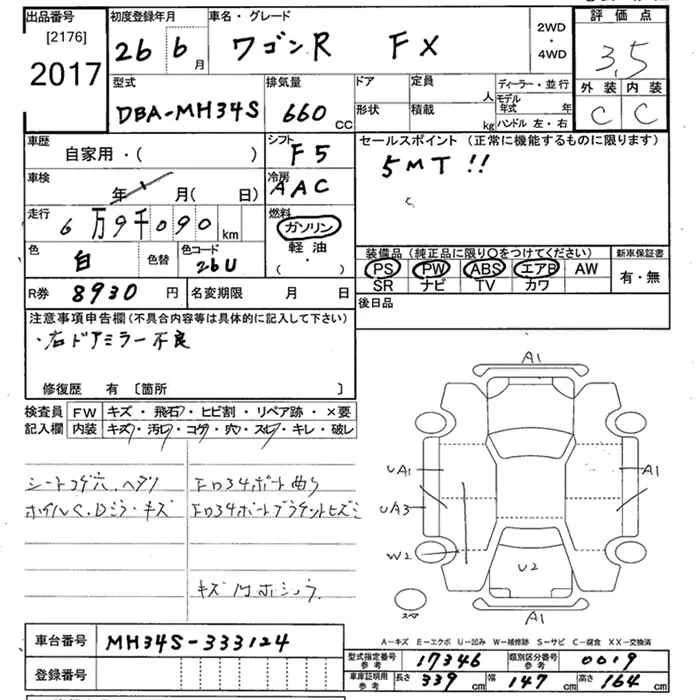 出品番号 初度登録年月 車名・グレード 2WD・4WD 評価点
[2176]
2017 26 6月 ワゴンR FX 3.5
型式 排気量 ドア 定員 人 ディーラー・並行 外装 内装
DBA-MH34S 660CC 形状 積載 kg モデル年式 年 C C
ハンドル 左・右
車歴 自家用・( ) シフト F5 セールスポイント (正常に機能するものに限ります)
5MT!!
車検 年 月( 日) 冷房 AAC
走行 6万9千090km 燃料 ガソリン
軽油
( ・ )
色 白 色替 色コード 26U
装備品 (純正品に限り〇をつけてください) 新車保証書
PS PW ABS エアB AW 有・無
SR ナビ TV カワ
R券 8930円 名変期限 月 日 後日品
注意事項申告欄 (不具合内容等は具体的に記入して下さい)
・右ドアミラー不良
修復歴 有 〔箇所 〕
検査員 FW キズ・飛石・ヒビ割・リペア跡・×要
記入欄 内装 キズ・汚レ・コゲ・穴・スレ・キレ・破レ
シートコゲ穴、ヘタリ
A1
UA1
UA3
W2
A1
U2
A1
A-キズ E-エクボ U-凹み W-補修跡 S-サビ C-腐食 XX-交換済
車台番号 MH34S-333124
登録番号
型式指定番号 参考 17346 類別区分番号 参考 0019
車庫証明用 参考 長さ 339cm 幅 147cm 高さ 164cm